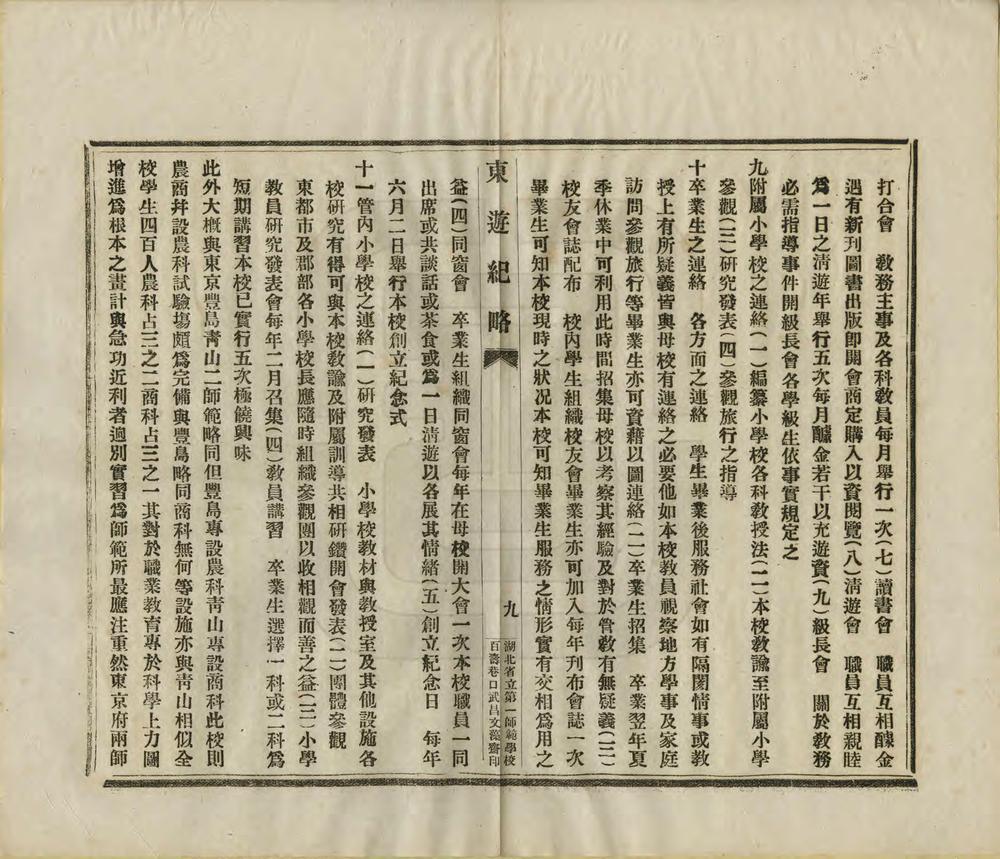 打合會　教務主事及各科教員每月舉行一次（七）讀書會　職員互相醵金
遇有新刊圖書出版即開會商定購入以資閱覽（八）清遊會　職員互相親睦
爲一日之清遊年舉行五次每月醵金若干以充遊資（九）級長會　關於教務
必需指導事件開級長會各學級生依事實規定之
九附屬小學校之連絡（一）編纂小學校各科教授法（二）本校教諭至附屬小學
參觀（三）研究發表（四）參觀旅行之指導
十卒業生之連絡　各方面之連絡　學生畢業後服務社會如有隔閡情事或教
授上有所疑義皆與母校有連絡之必要他如本校教員視察地方學事及家庭
訪問參觀旅行等畢業生亦可資藉以圖連絡（二）卒業生招集　卒業翌年夏
季休業中可利用此時間招集母校以考察其經驗及對於管教有無疑義（三）
校友會誌配布　校內學生組織校友會畢業生亦可加入每年刊布會誌一次
畢業生可知本校現時之狀况本校可知畢業生服務之情形實有交相爲用之
東遊紀略
九
湖北省立第一師範學校
百壽巷口武昌文藻齋印
益（四）同窗會　卒業生組織同窗會每年在母校開大會一次本校職員一同
出席或共談話或茶食或爲一日清遊以各展其情緒（五）創立紀念日　每年
六月二日舉行本校創立紀念式
十一管內小學校之連絡（一）研究發表　小學校教材與教授室及其他設施各
校研究有得可與本校教諭及附屬訓導共相研鑽開會發表（二）團體參觀
東都市及郡部各小學校長應隨時組織參觀團以收相觀而善之益（三）小學
教員研究發表會每年二月召集（四）教員講習　卒業生選擇一科或二科爲
短期講習本校已實行五次極饒興味
此外大概與東京豐島青山二師範略同但豐島專設農科青山專設商科此校則
農商幷設農科試驗塲頗爲完備與豐島略同商科無何等設施亦與青山相似全
校學生四百人農科占三之二商科占三之一其對於職業教育專於科學上力圖
增進爲根本之畫計與急功近利者迥別實習爲師範所最應注重然東京府兩師